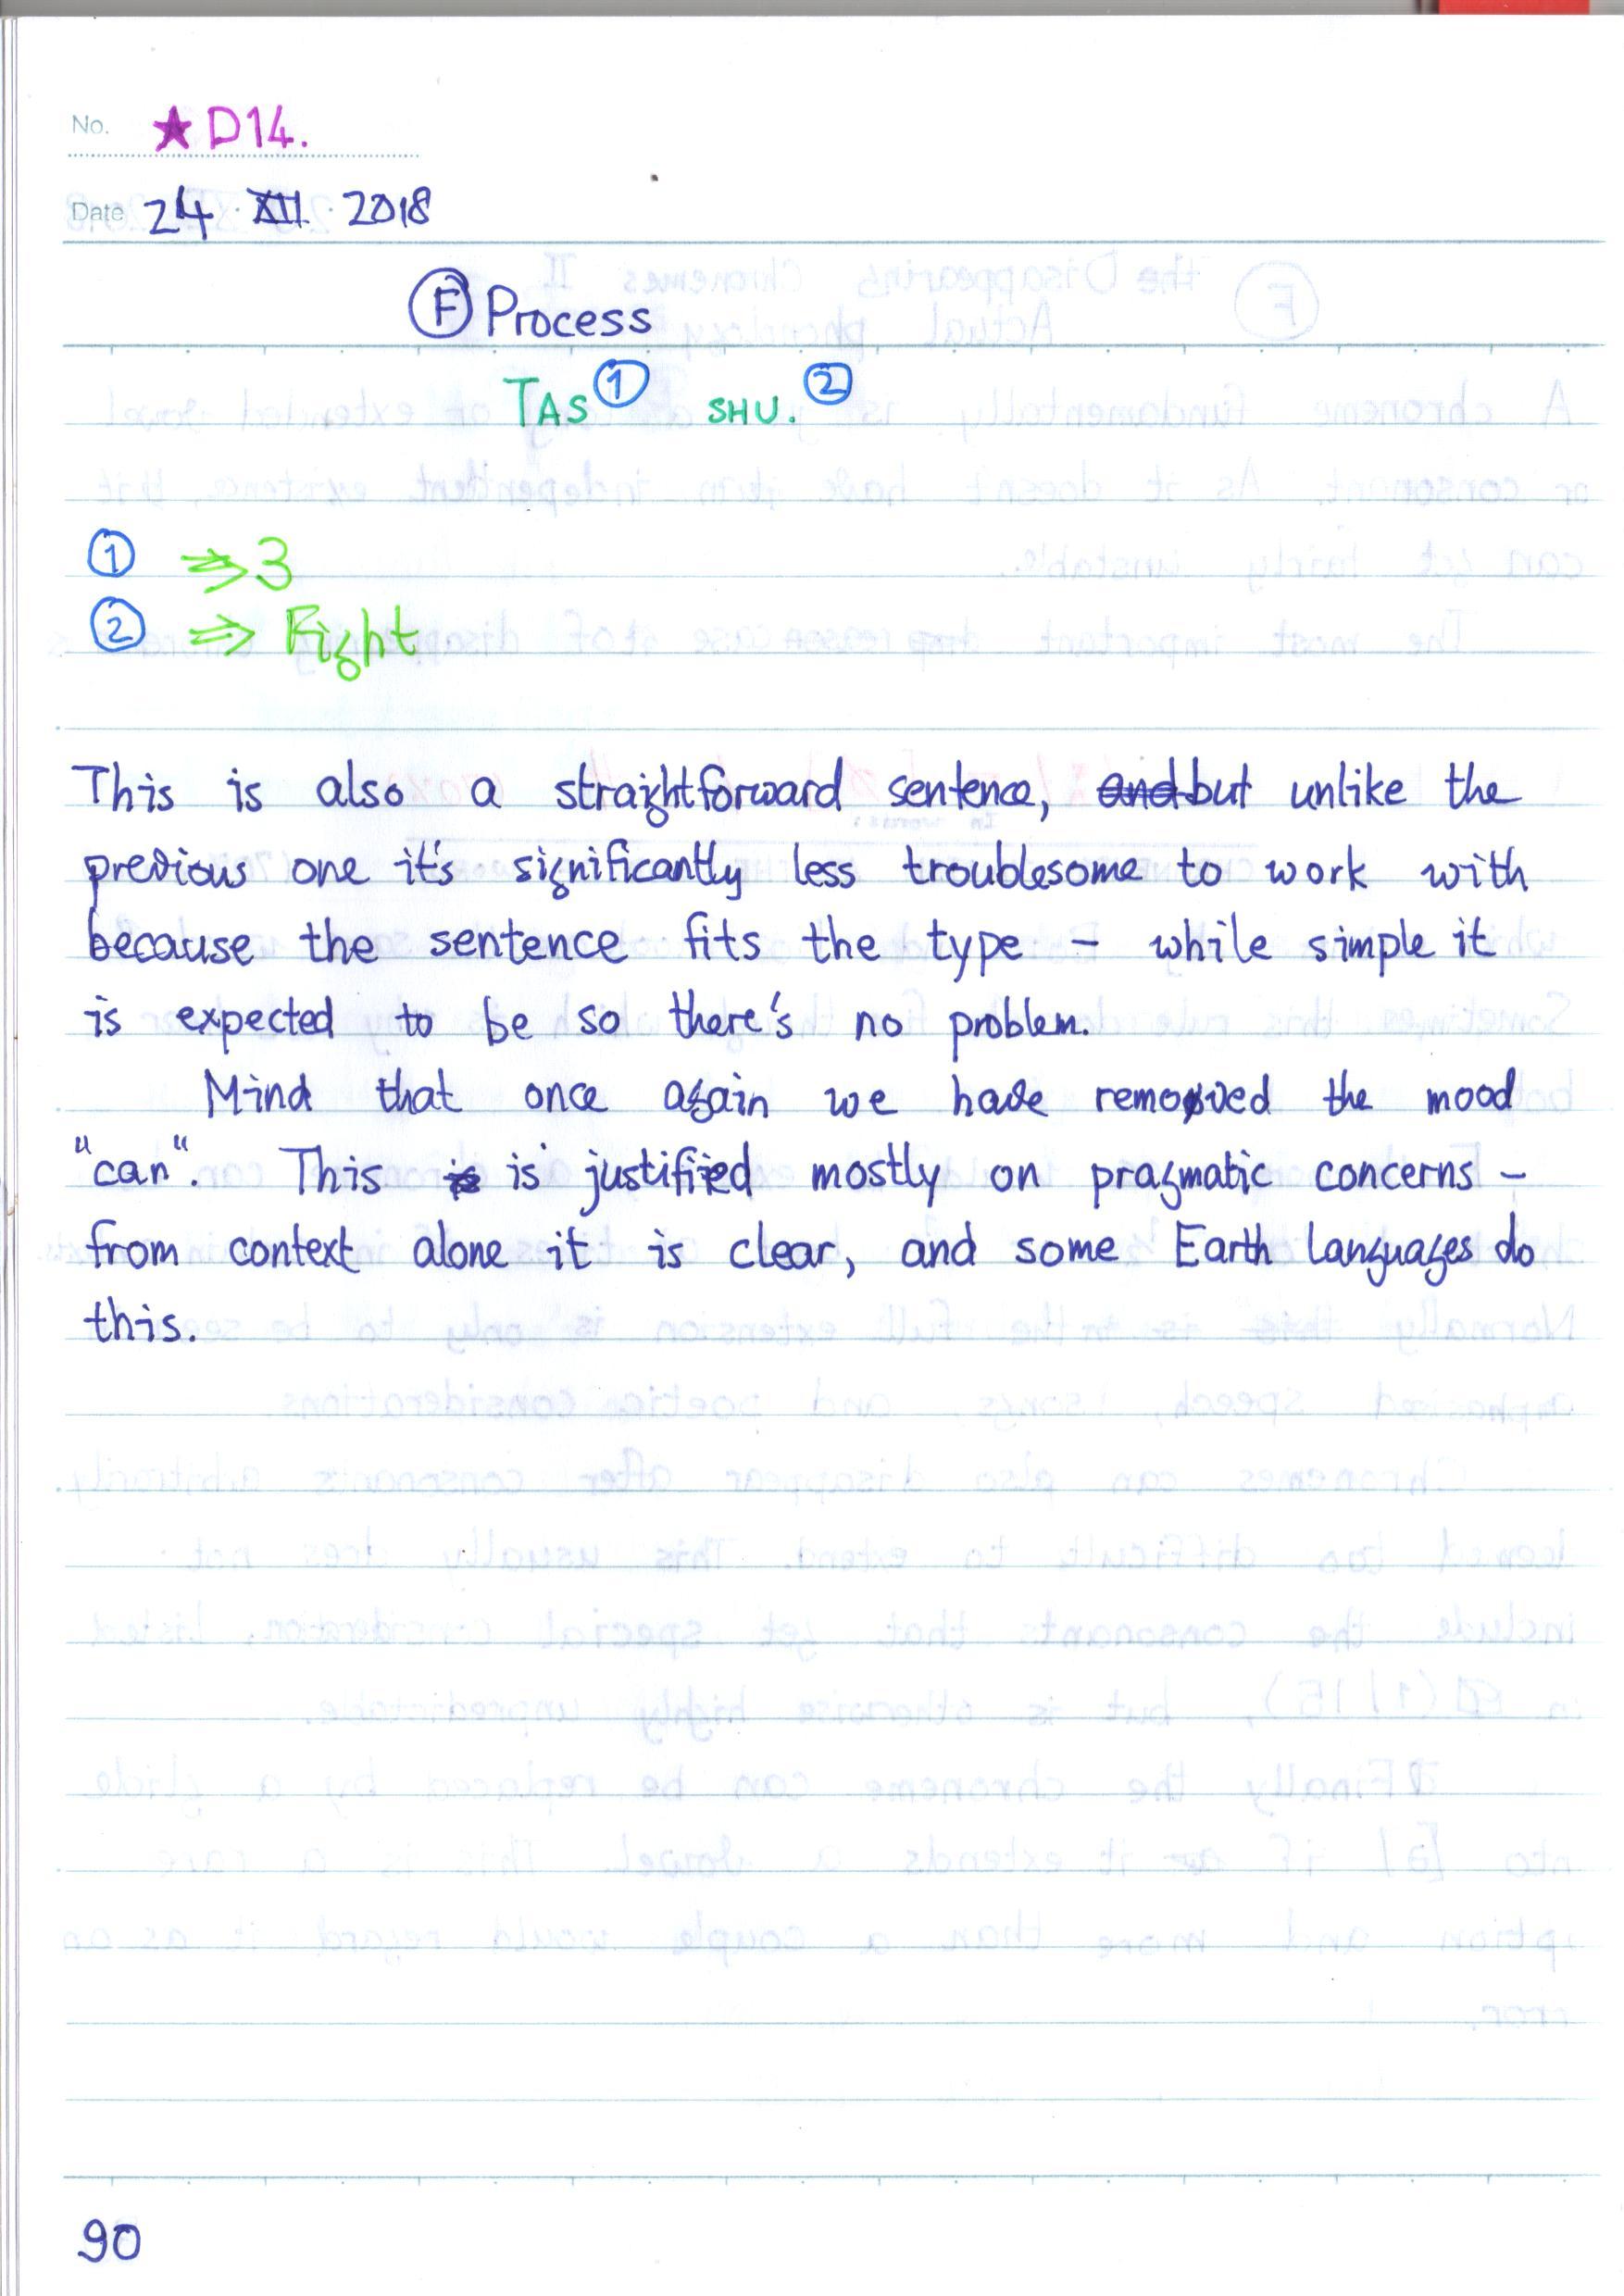 No. ★ D14.
Date 24 · XII · 2018
Ⓕ Process
TAS① SHU.②
① ⇒ 3
② ⇒ Fight
This is also a straightforward sentence, and but unlike the
previous one it's significantly less troublesome to work with
because the sentence fits the type – while simple it
is expected to be so there's no problem.
Mind that once again we have removed the mood
"can". This is is justified mostly on pragmatic concerns –
from context alone it is clear, and some Earth languages do
this.
90